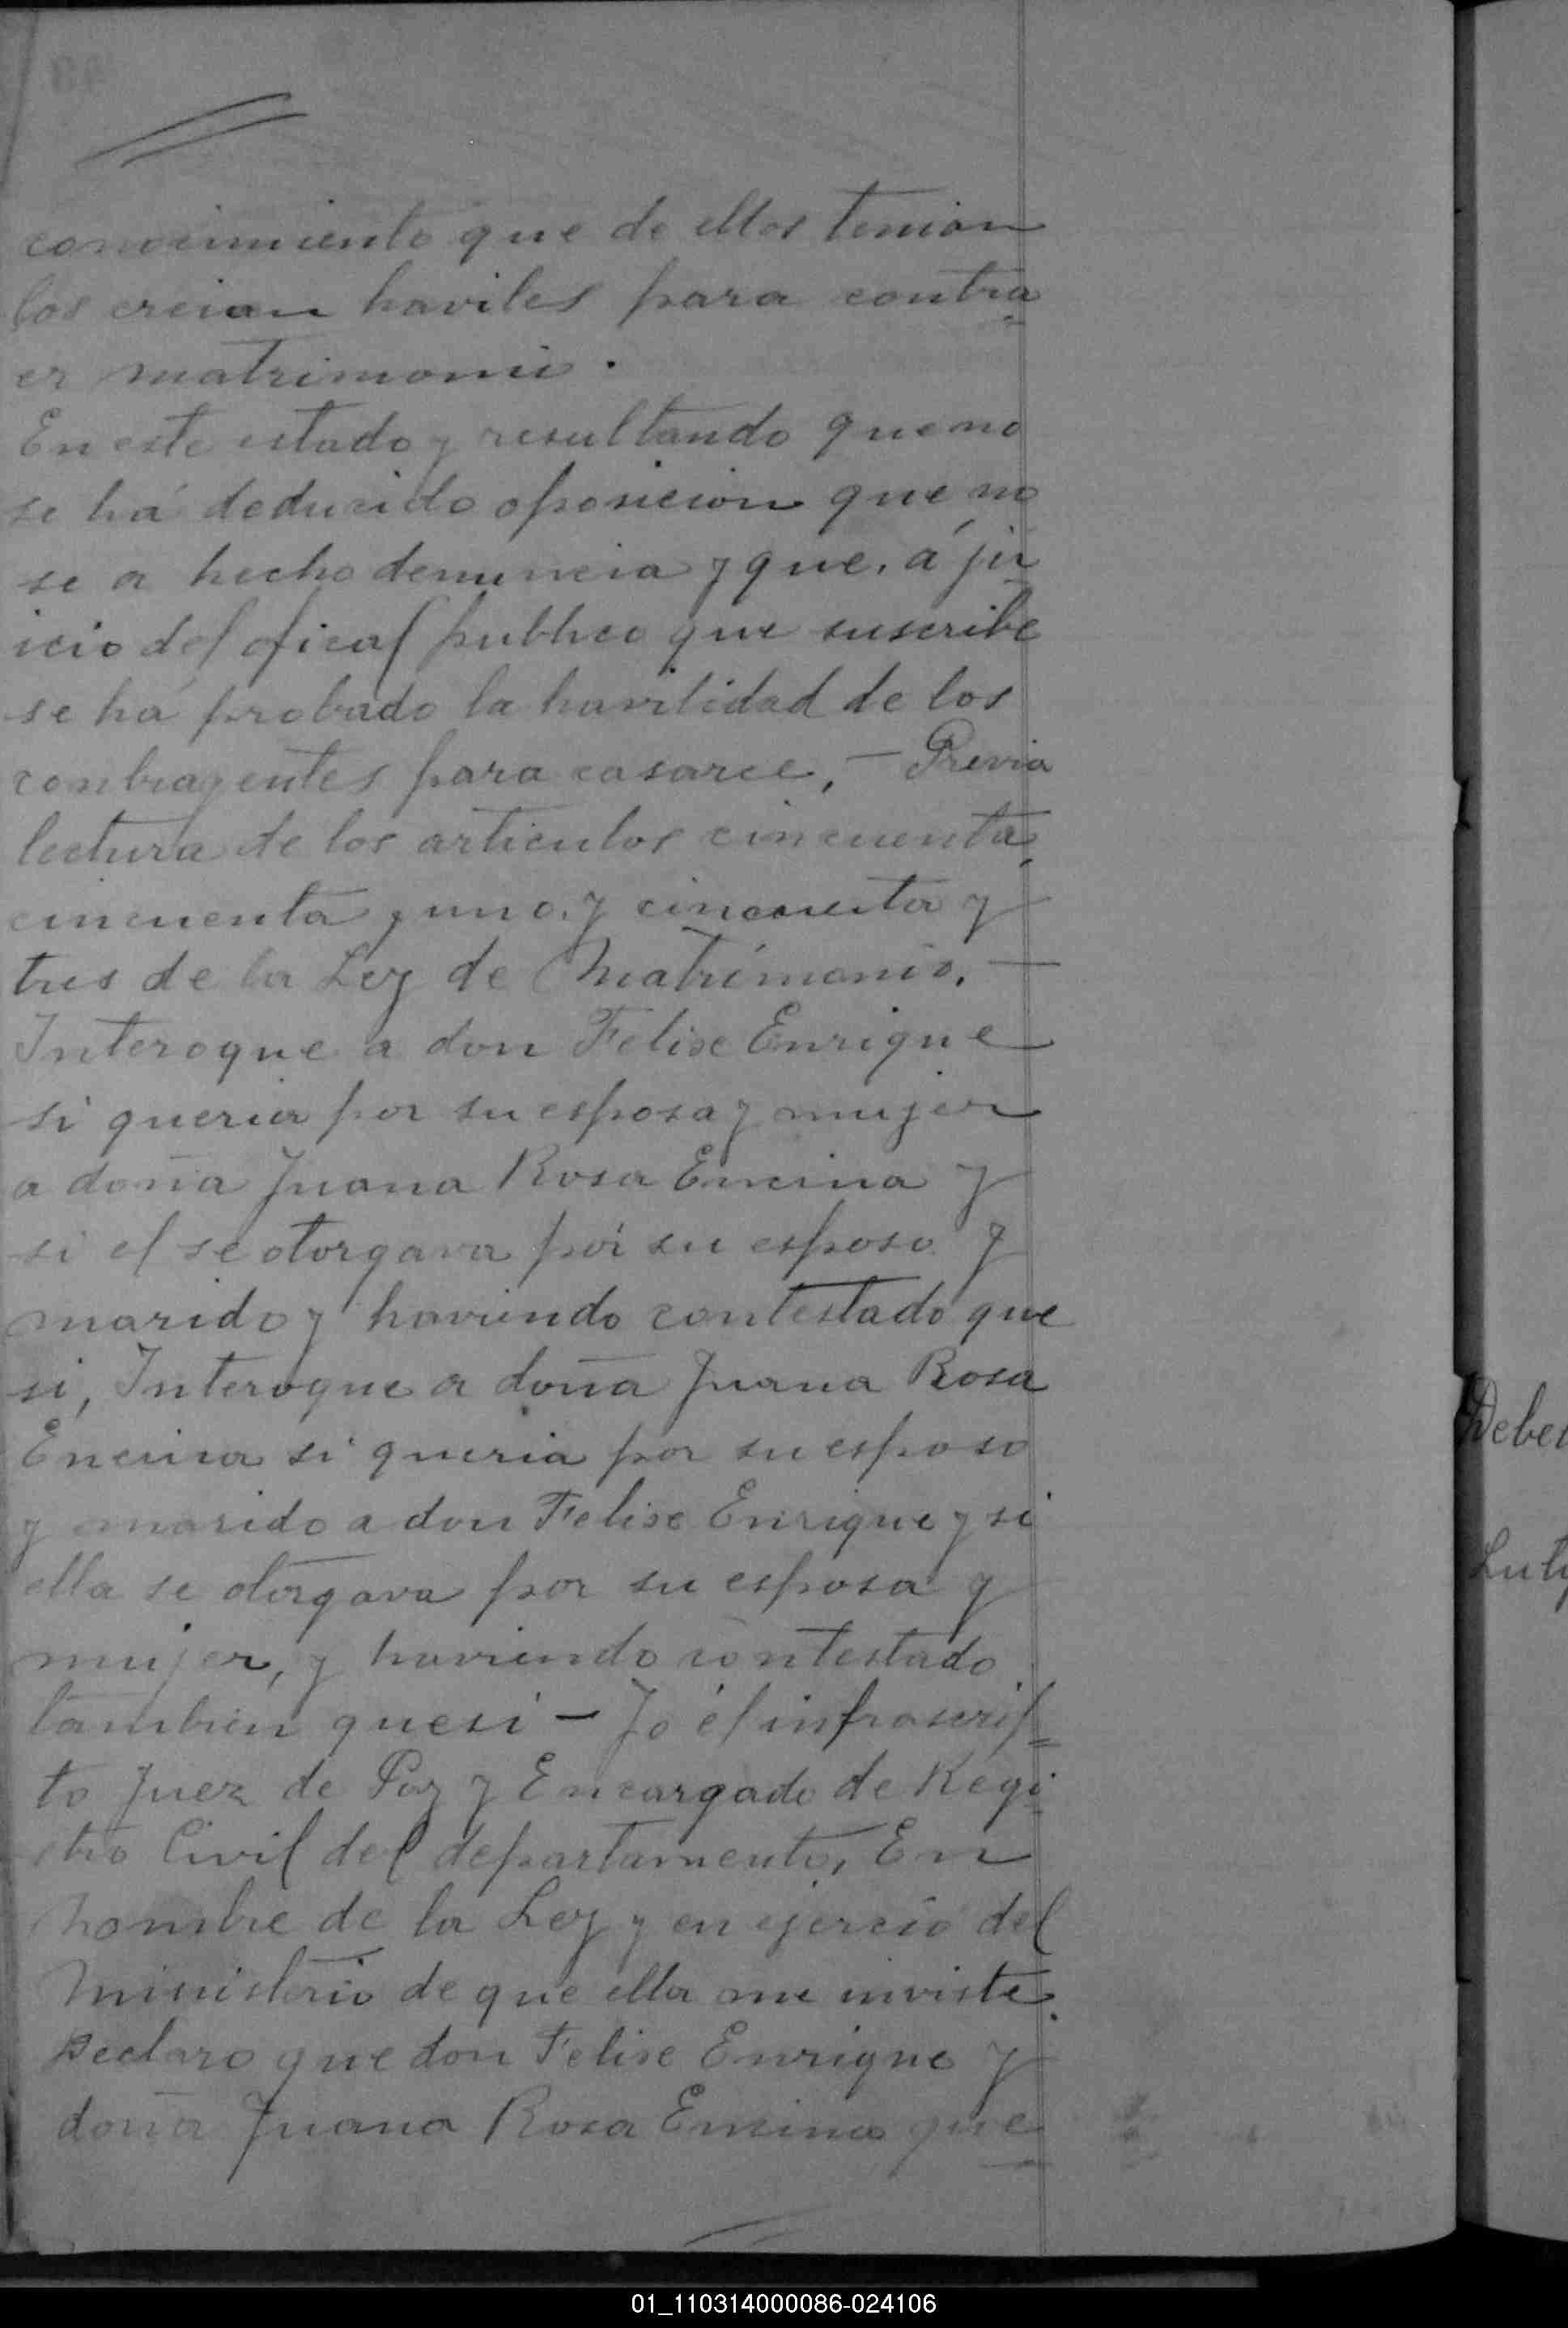 conocimiento que de ellos tenian
los creian haviles para contra
er matrimonio.
En este estado y resultando que no
se há deducido oposicion que no
se a hecho denuncia y que, á ju
icio del oficial publico que suscribe
se há probado la havilidad de los
contrayentes para casarce, — Previa
lectura de los articulos cincuenta,
cincuenta y uno, y cincuenta y
tres de la Ley de Matrimonio. —
Interogue a don Felise Enrique
si queria por su esposa y mujer
a doña Juana Rosa Encina y
si el se otorgava por su esposo y
marido y haviendo contestado que
si, Interogue a doña Juana Rosa
Encina si queria por su esposo
y marido a don Felise Enrique y si
ella se otorgava por su esposa y
mujer, y haviendo contestado
tambien que si — Yo él infrascrip=
to Juez de Paz y Encargado de Regi
stro Civil del departamento, En
nombre de la Ley y en ejercio del
Ministerio de que ella me inviste.
Declaro que don Felise Enrique y
doña Juana Rosa Encina que
01_110314000086-024106